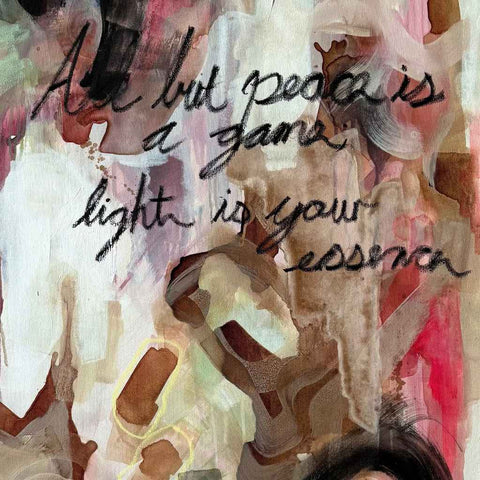 All but peace is
a game
light is your
essence